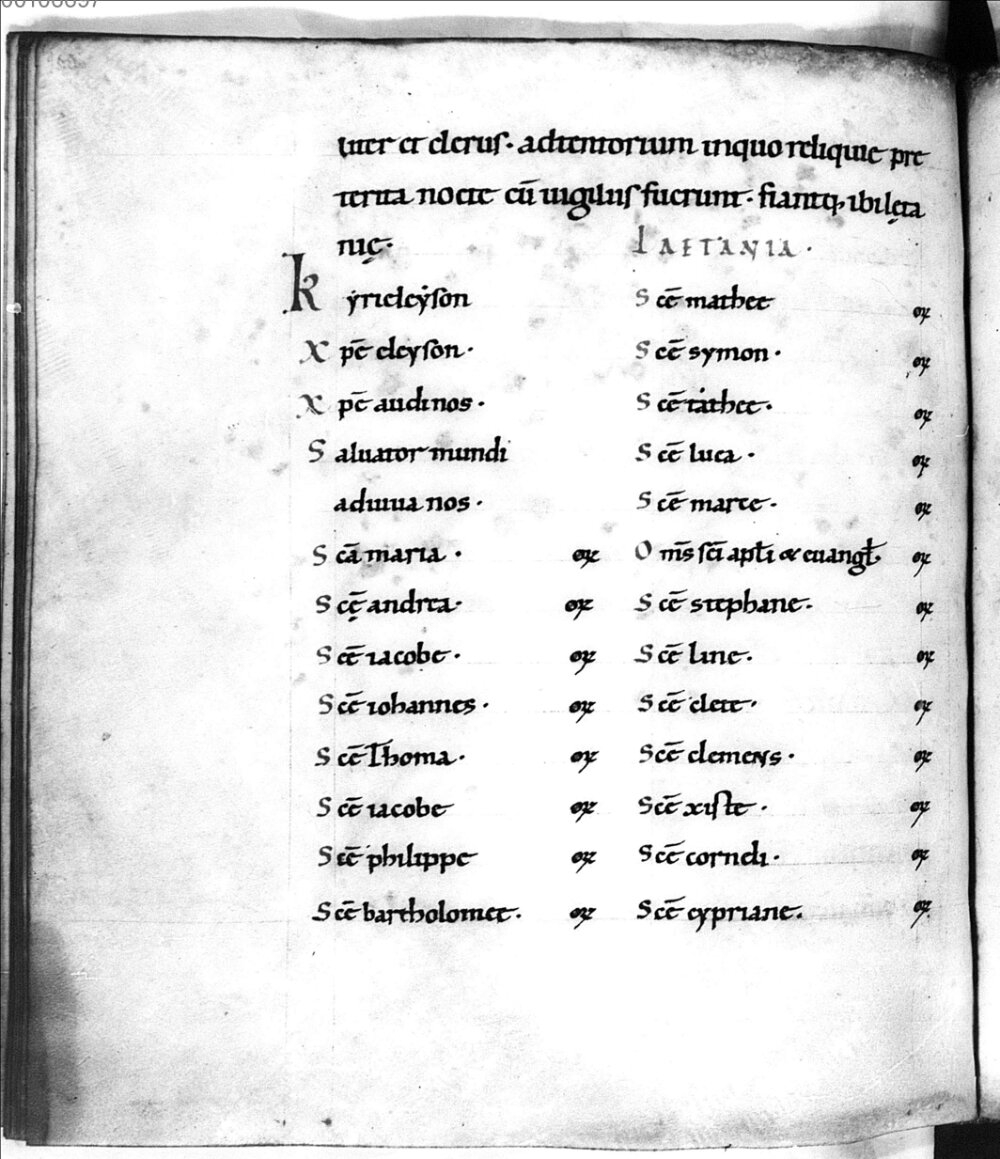 iuter et clerus. adtentorium inquo reliquie pre
terita nocte cū uigiliis fuerunt. fiantq; ibi lęta
nię.
LAETANIA.
Kyrieleyson
Xpē eleyson.
Xpē audi nos.
Saluator mundi
adiuua nos.
Scā maria. or
Scę̄ andrea. or
Scē iacobe. or
Scē iohannes. or
Scē Thoma. or
Scē iacobe or
Scē philippe or
Scē bartholomee. or
Scē mathee or
Scē symon. or
Scē tathee. or
Scē luca. or
Scē marce. or
Om̄s sci apli & euangl. or
Scē stephane. or
Scē line. or
Scē clete. or
Scē clemens. or
Scē xiste. or
Scē corneli. or
Scē cypriane. or